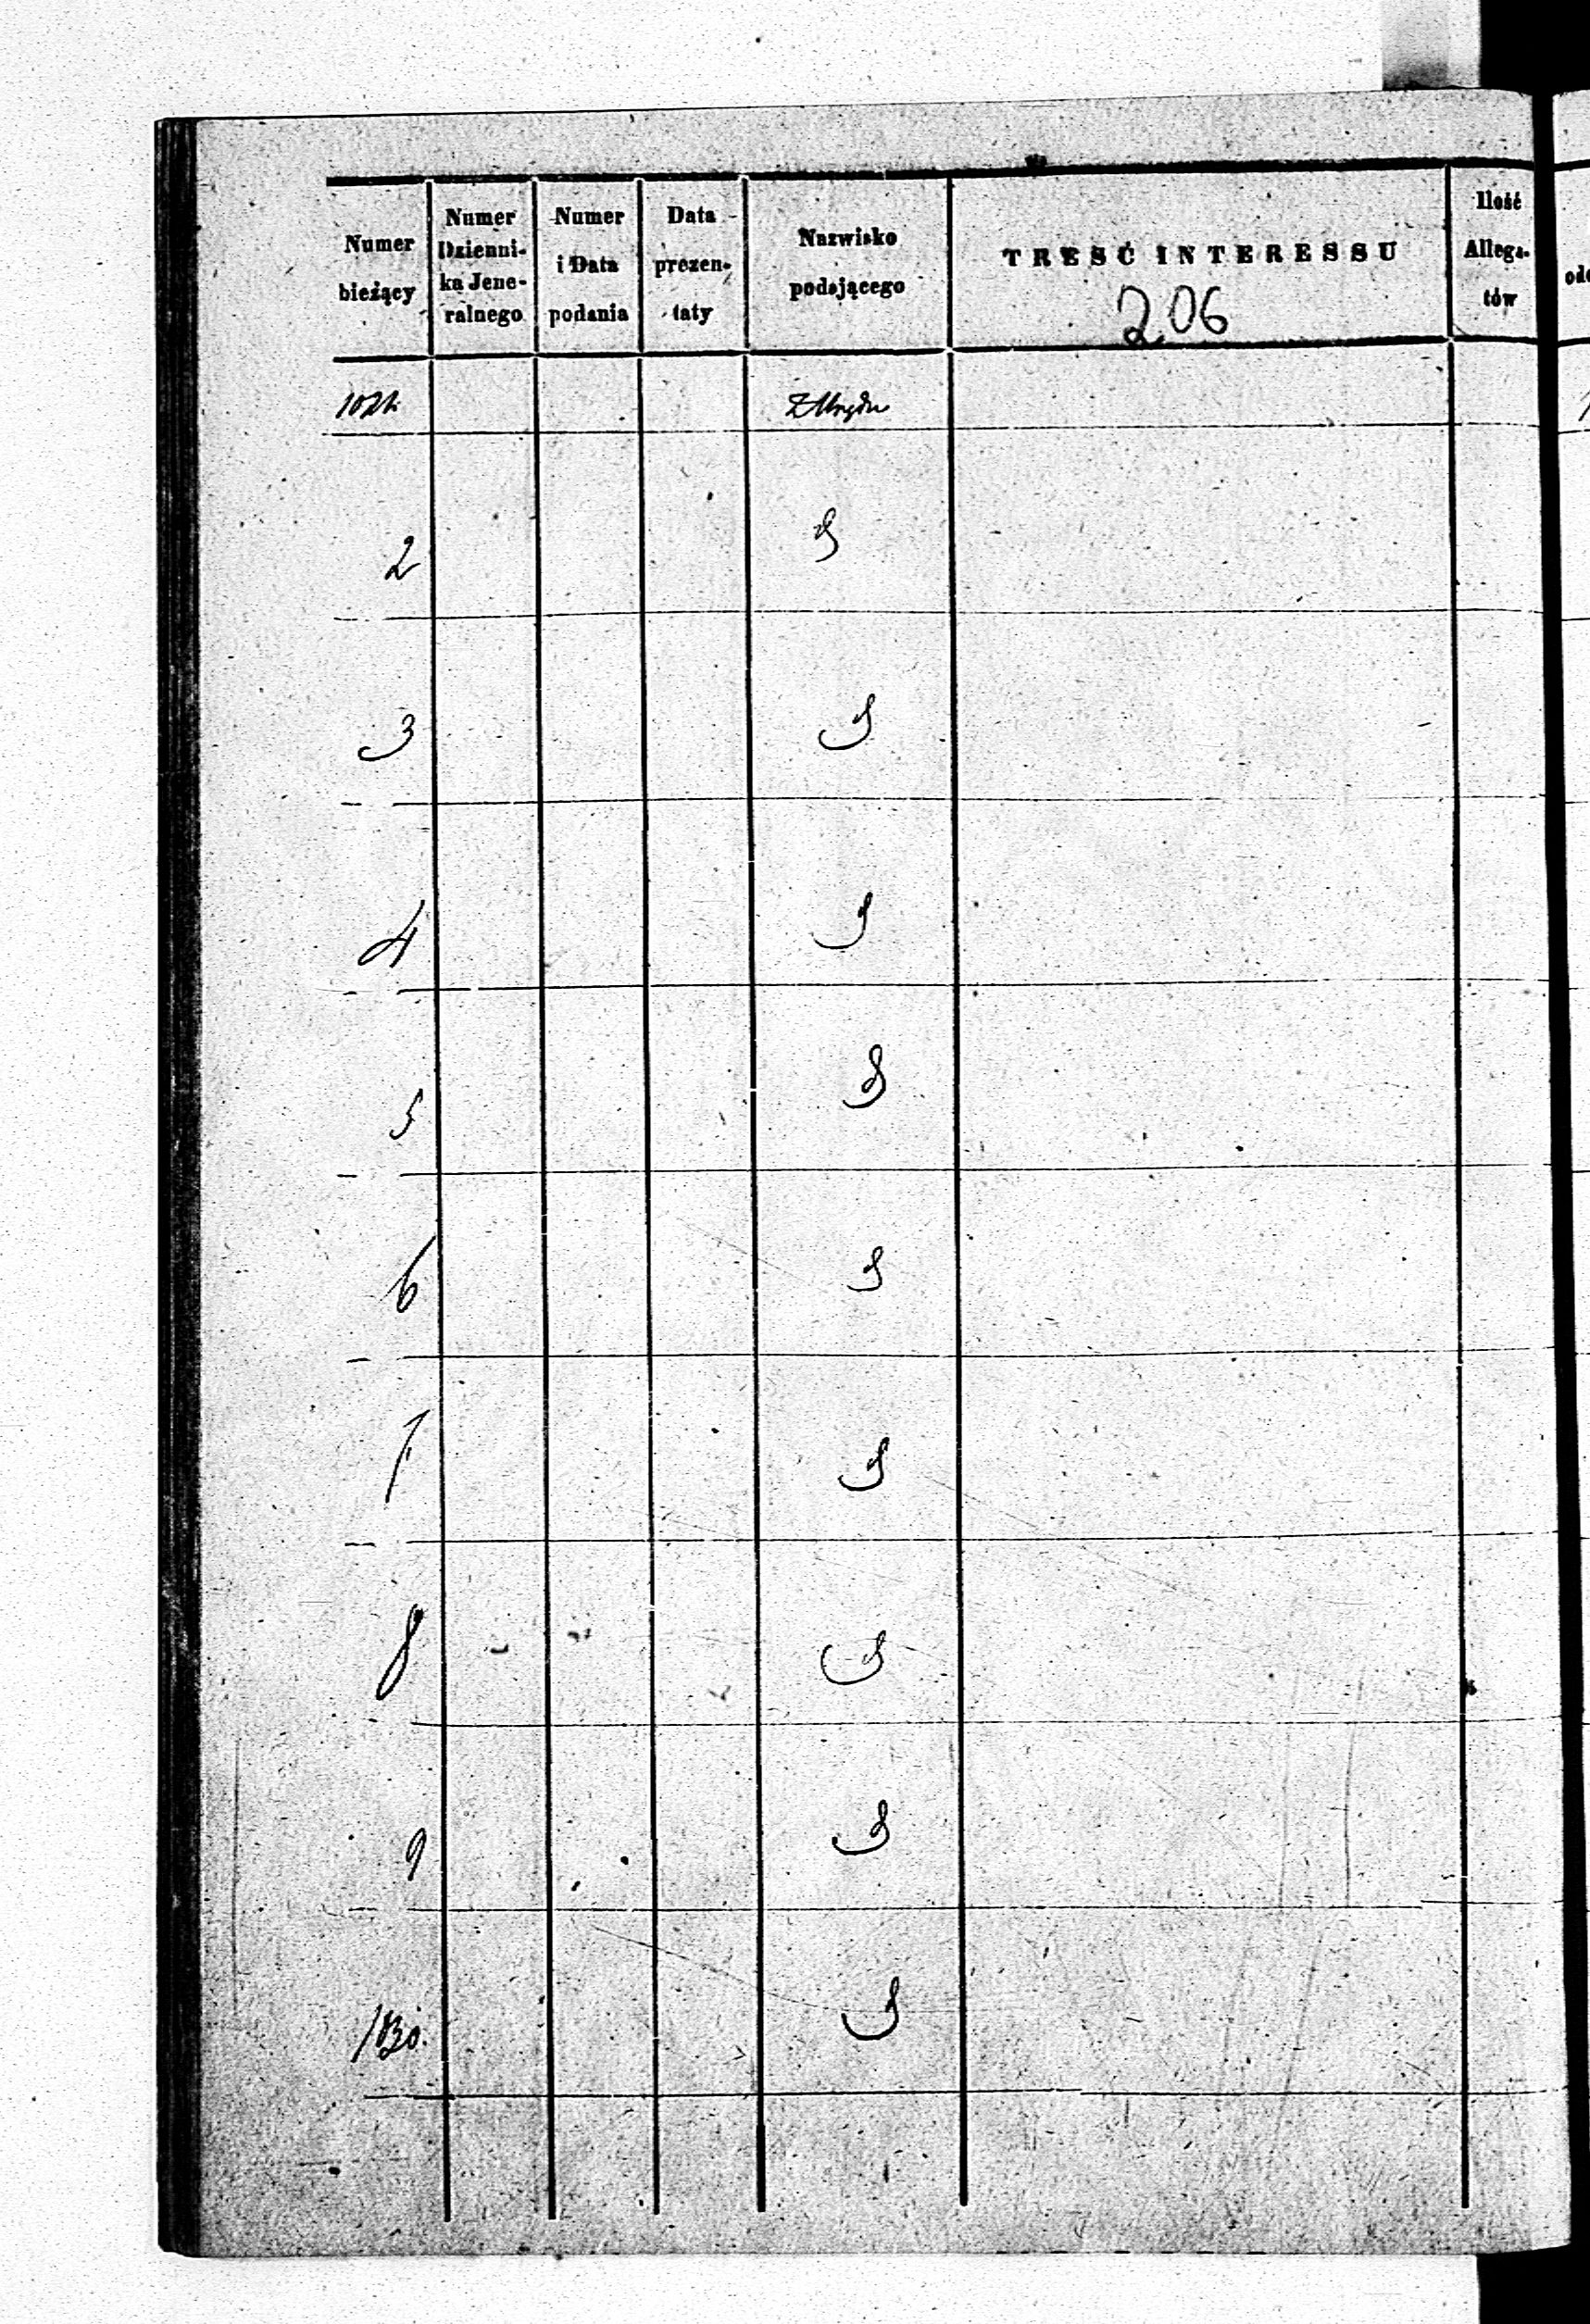 Numer bieżący
Numer Dzienni-ka Jene-ralnego
Numer i Data podania
Data prezen-taty
Nazwisko podającego
TREŚĆ INTERESSU
Ilość Allega-tów
206
Z Urzędu
2
3
4
5
6
7
8
9
1030.